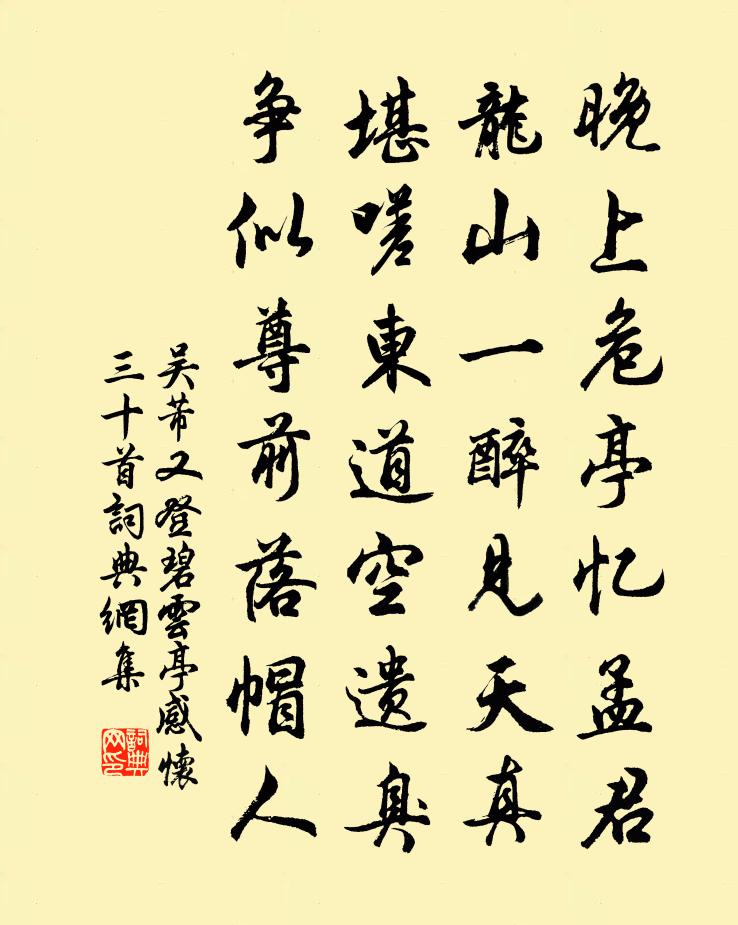 晚上危亭忆孟君
龍山一醉見天真
堪嗟東道空遗臭
争似尊前落帽人
吴芾又登碧雲亭感懷
三十首詞典網集
詞典網印